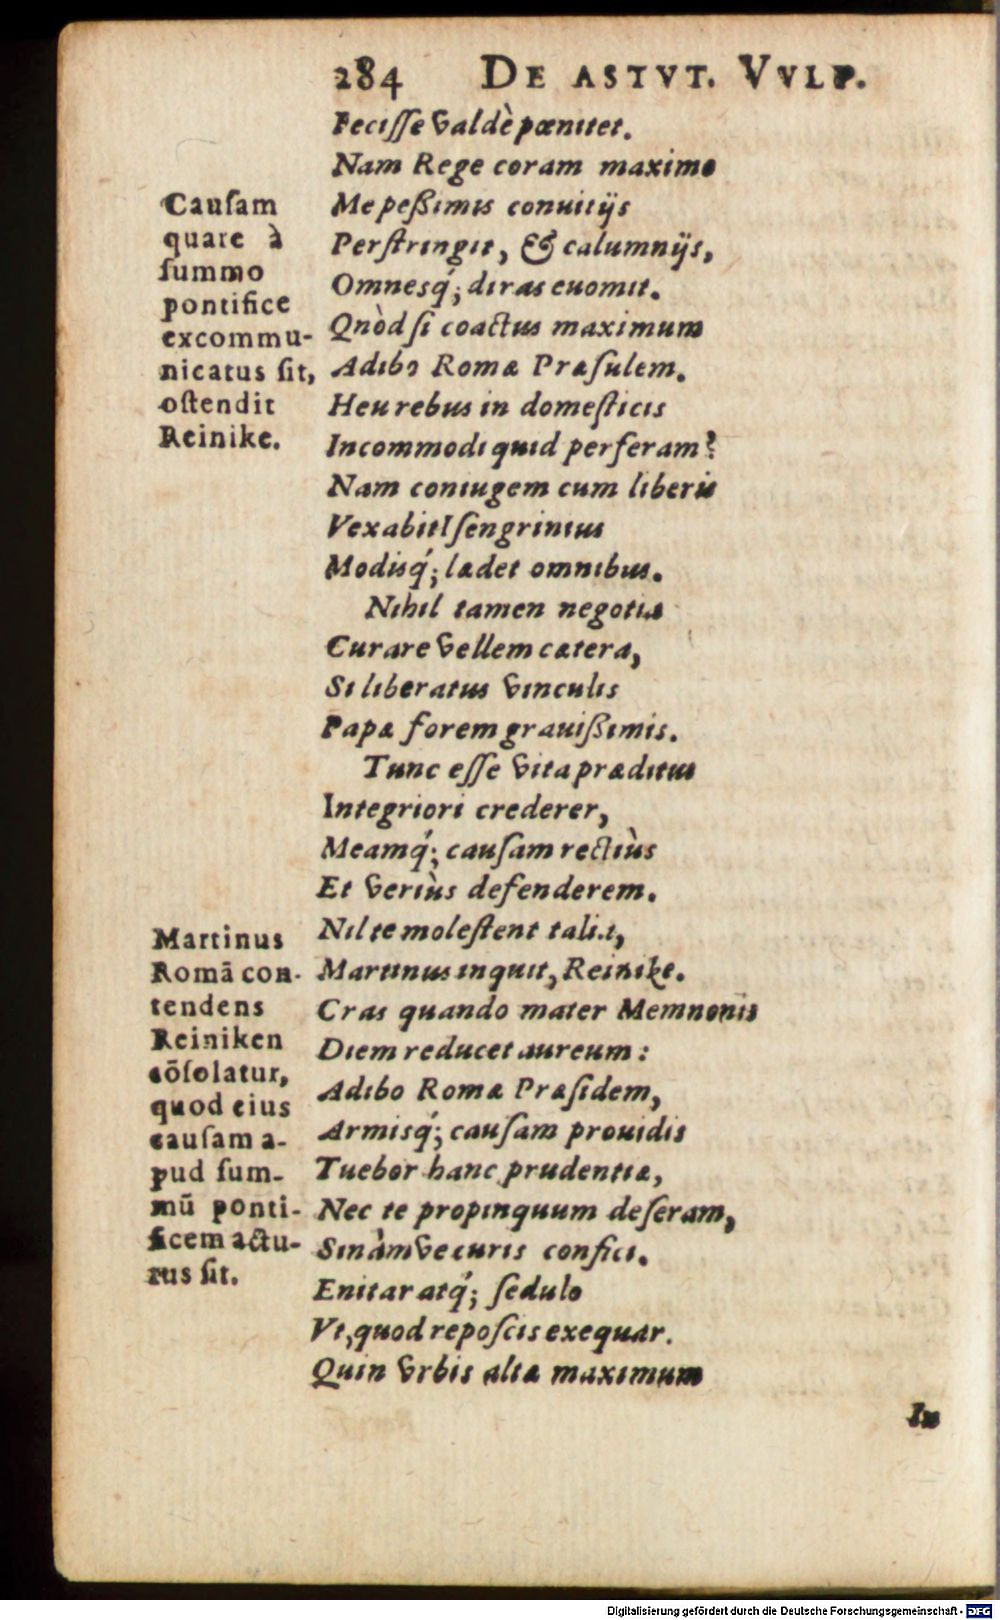 284 DE ASTVT. VVLP.
Fecisse valdè pœnitet.
Nam Rege coram maximo
Causam
quare à
summo
pontifice
excommu-
nicatus sit,
ostendit
Reinike.
Me peßimis conuitijs
Perstringit, & calumnijs,
Omnesq́; diras euomit.
Quòd si coactus maximum
Adibo Romæ Præsulem.
Heu rebus in domesticis
Incommodi quid perferam?
Nam coniugem cum liberis
Vexabit Isengrinius
Modisq́; lædet omnibus.
Nihil tamen negotia
Curare vellem cætera,
Si liberatus vinculis
Papæ forem grauißimis.
Tunc esse vita præditus
Integriori crederer,
Meamq́; causam rectiùs
Et veriùs defenderem.
Martinus
Romā con-
tendens
Reiniken
cōsolatur,
quod eius
causam a-
pud sum-
mū ponti-
ficem actu-
rus sit.
Nil te molestent talia,
Martinus inquit, Reinike.
Cras quando mater Memnonis
Diem reducet aureum:
Adibo Romæ Præsidem,
Armisq́; causam prouidis
Tuebor hanc prudentiæ,
Nec te propinquum deseram,
Sinàmve curis confici.
Enitar atq́; sedulo
Vt, quod reposcis exequar.
Quin vrbis altæ maximum
In
Digitalisierung gefördert durch die Deutsche Forschungsgemeinschaft - DFG